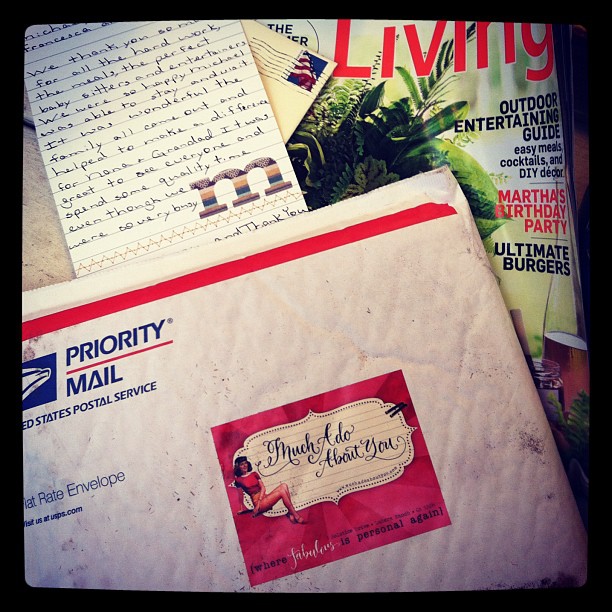 We thank you so m
for all the hard work,
the meals, the perfect
baby sitters and entertainers.
We were so happy michael
was able to stay and visit.
It was wonderful the
family all came out and
helped to make a difference
for nana & Grandad. It was
great to see everyone and
spend some quality time
even though we
were so very busy
m
and Thank You
THE
Living
OUTDOOR
ENTERTAINING
GUIDE
easy meals,
cocktails, and
DIY décor
MARTHA'S
BIRTHDAY
PARTY
ULTIMATE
BURGERS
PRIORITY®
MAIL
ED STATES POSTAL SERVICE
lat Rate Envelope
isit us at usps.com
Much Ado
About You
[where fabulous is personal again]